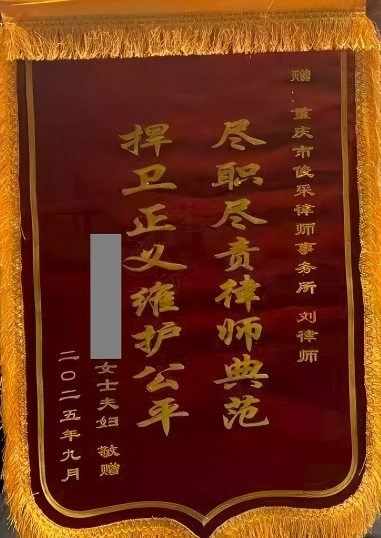 赠：重庆市俊采律师事务所 刘律师
尽职尽责律师典范
捍卫正义维护公平
女士夫妇 敬赠
二〇二五年九月